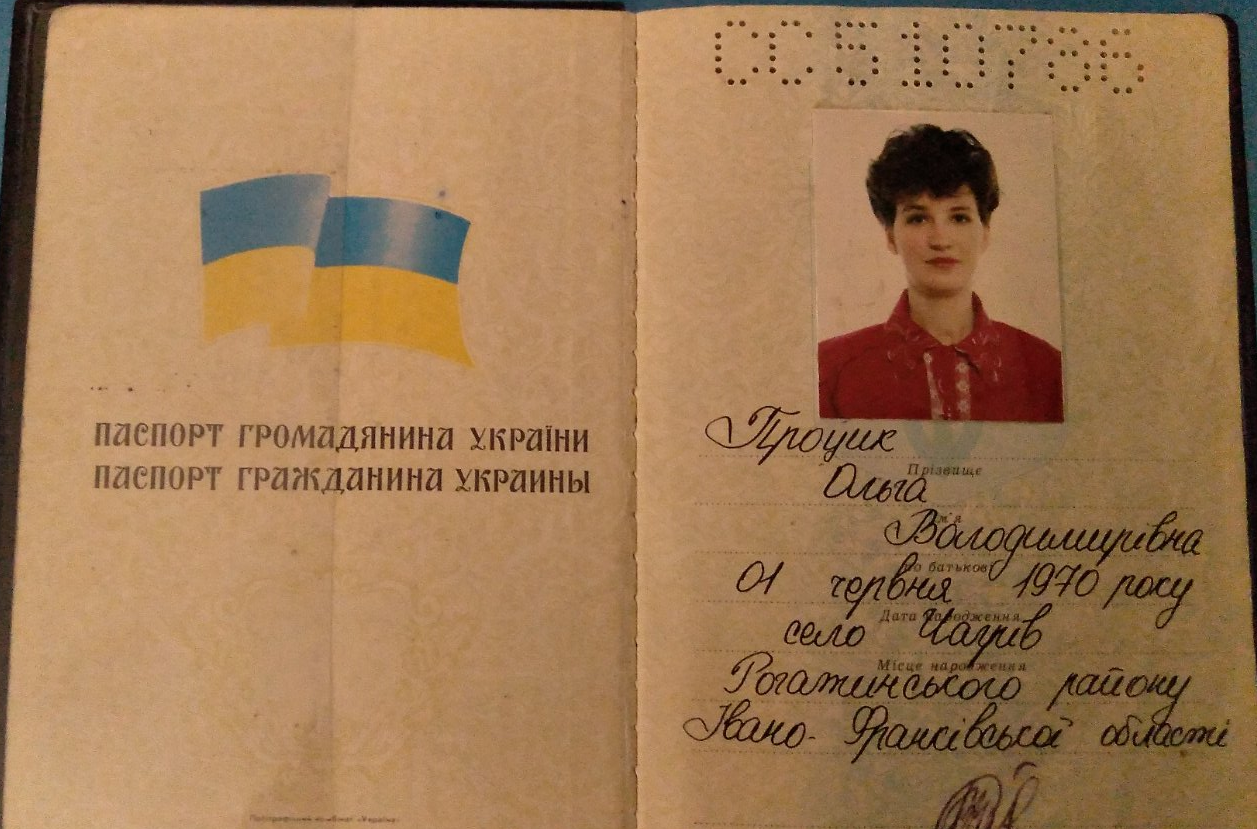 ПАСПОРТ ГРОМАДЯНИНА УКРАЇНИ
ПАСПОРТ ГРАЖДАНИНА УКРАИНЫ
Процик
Прізвище
Ольга
Ім'я
Володимирівна
По батькові
01 червня 1970 року
Дата народження
село Чагрів
Місце народження
Рогатинського району
Івано-Франківської області